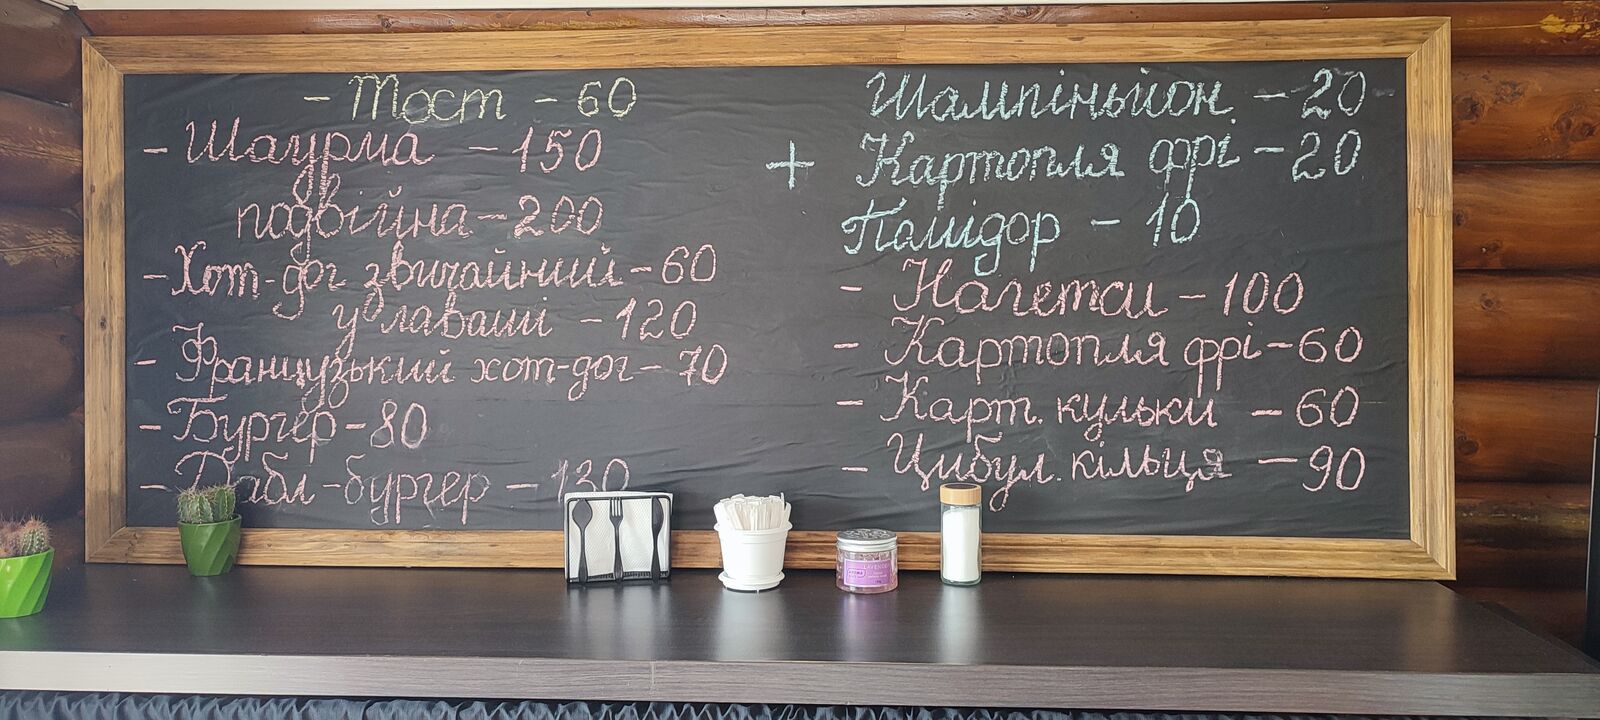 - Тост - 60
- Шаурма - 150
подвійна - 200
- Хот-дог звичайний - 60
у лаваші - 120
- Французький хот-дог - 70
- Бургер - 80
- Дабл-бургер - 130
Шампіньйон. - 20
+ Картопля фрі - 20
Помідор - 10
- Нагетси - 100
- Картопля фрі - 60
- Карт. кульки - 60
- Цибул. кільця - 90
LAVENDER